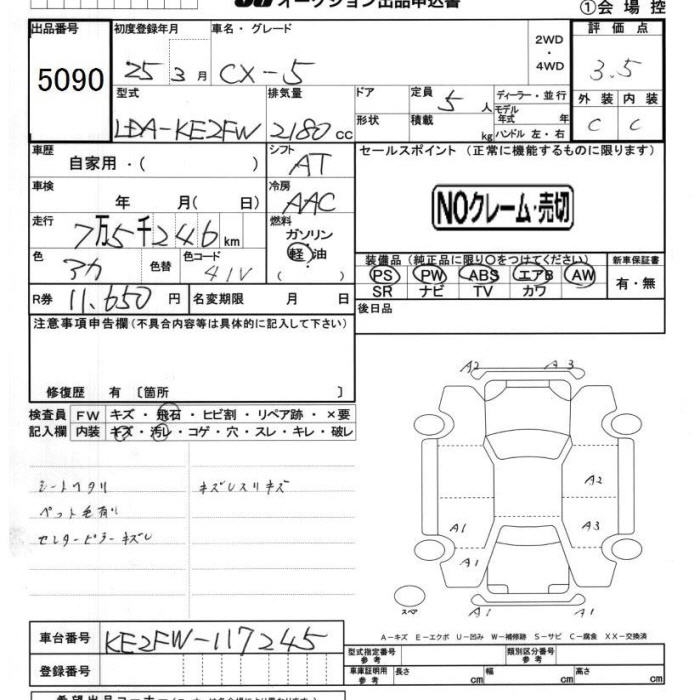 オークション出品申込書
①会場控
出品番号 初度登録年月 車名・グレード 評価点
5090 25 3月 CX-5 2WD・4WD 3.5
型式 排気量 ドア 定員 5人 ディーラー・並行 外装 内装
LDA-KE2FW 2180cc 形状 積載 kg モデル年式 年 C C
ハンドル 左・右
車歴 シフト セールスポイント (正常に機能するものに限ります)
自家用・( ) AT
車検 冷房 NOクレーム・売切
年 月( 日) AAC
走行 燃料
7万5千246km ガソリン
色 色替 色コード 軽油 装備品(純正品に限り○をつけてください) 新車保証書
アカ 41V ( ) PS PW ABS エアB AW 有・無
R券 11,650円 名変期限 月 日 SR ナビ TV カワ
注意事項申告欄(不具合内容等は具体的に記入して下さい) 後日品
修復歴 有 〔箇所 〕
検査員 FW キズ・飛石・ヒビ割・リペア跡・×要
記入欄 内装 キズ・汚レ・コゲ・穴・スレ・キレ・破レ
シートヘタリ キズレスリキズ
ペット毛有り
センターピラーキズレ
A2 A3
A2
A1 A3
A1
スペ A1 A1
A-キズ E-エクボ U-凹み W-補修跡 S-サビ C-腐食 XX-交換済
車台番号 KE2FW-117245
型式指定番号 参考 類別区分番号 参考
登録番号 車庫証明用 参考 長さ cm 幅 cm 高さ cm